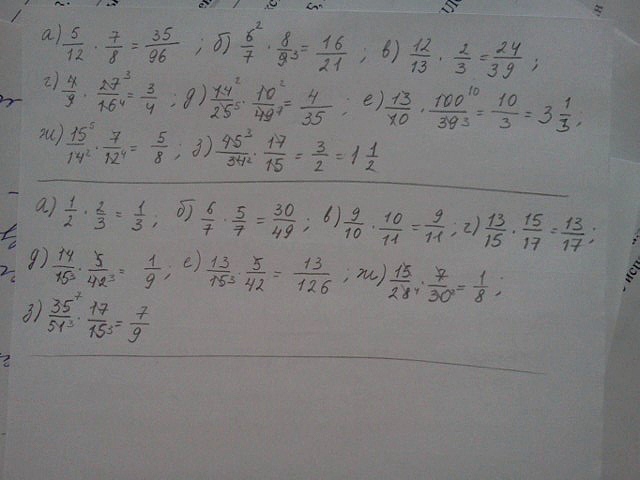 а) 5/12 · 7/8 = 35/96 ; б) 6²/7 · 8/9³ = 16/21 ; в) 12/13 · 2/3 = 24/39 ;
г) 4/9 · 27³/16⁴ = 3/4 ; д) 14²/25⁵ · 10²/49⁷ = 4/35 ; е) 13/10 · 100¹⁰/39³ = 10/3 = 3 1/3 ;
ж) 15⁵/14² · 7/12⁴ = 5/8 ; з) 45³/34² · 17/15 = 3/2 = 1 1/2
а) 1/2 · 2/3 = 1/3 ; б) 6/7 · 5/7 = 30/49 ; в) 9/10 · 10/11 = 9/11 ; г) 13/15 · 15/17 = 13/17 ;
д) 14/15³ · 5/42³ = 1/9 ; е) 13/15³ · 5/42 = 13/126 ; ж) 15/28⁴ · 7/30² = 1/8 ;
з) 35⁷/51³ · 17/15³ = 7/9